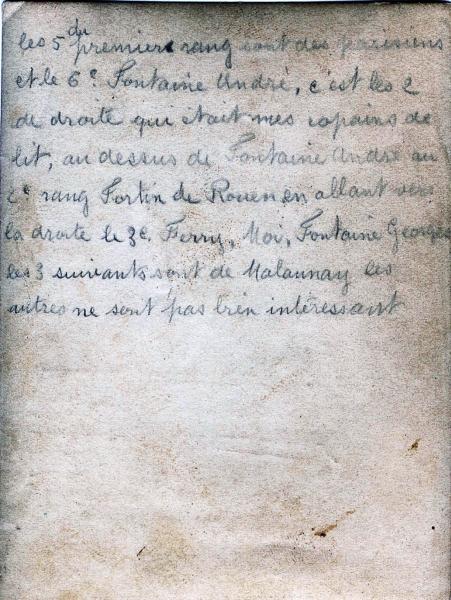 les 5 du premiere rang sont des parisiens
et le 6e Fontaine André, c'est les 2
de droite qui était mes copains de
lit, au dessus de Fontaine André au
2e rang Fortin de Rouen en allant vers
la droite le 3e. Ferry, Moi, Fontaine Georges
les 3 suivants sont de Malaunay les
autres ne sont pas bien intéressant